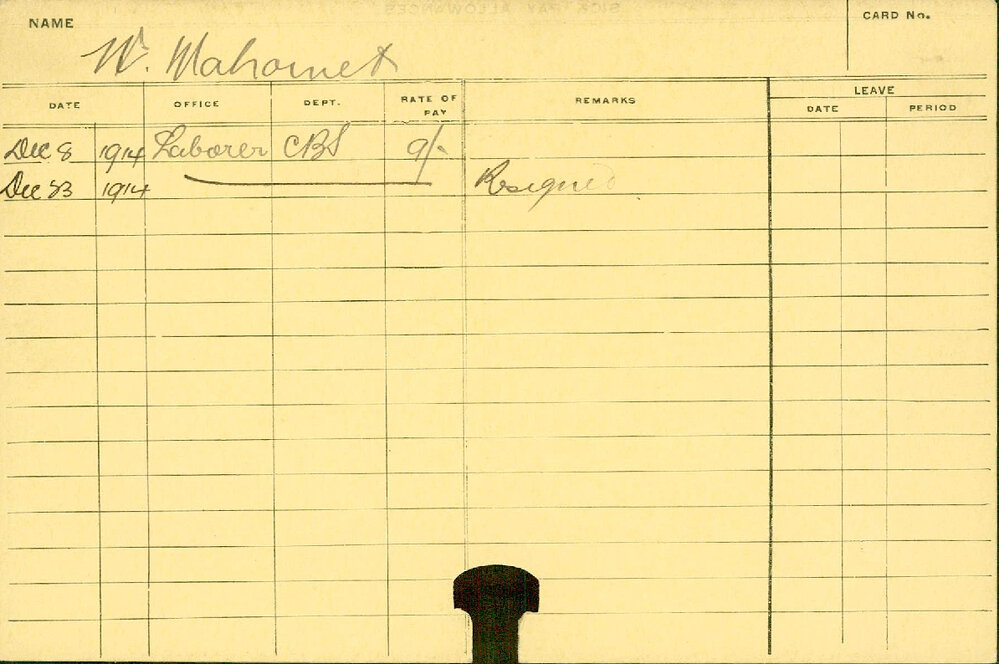 NAME
CARD No.
W. Mahomet
DATE OFFICE DEPT. RATE OF PAY REMARKS LEAVE
DATE PERIOD
Dec 8 1914 Laborer CBS 9/-
Dec 23 1914 Resigned